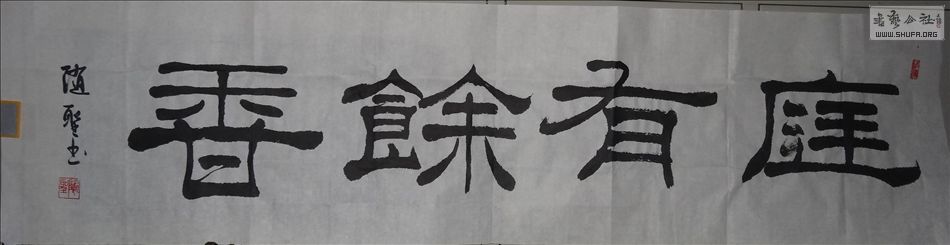 庭有餘香
随聖书
書艺公社
WWW.SHUFA.ORG